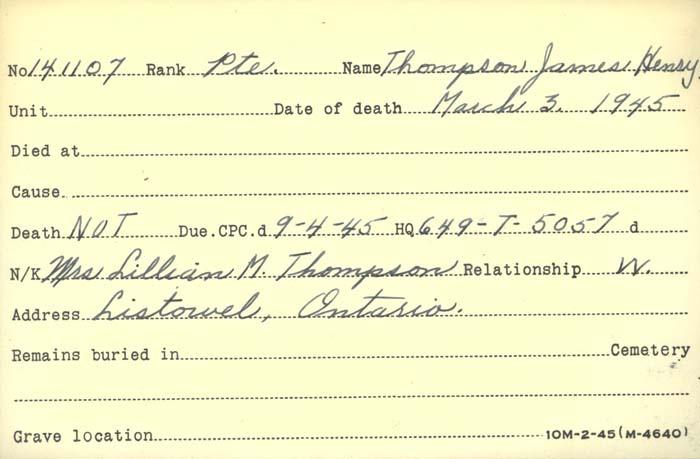 No 141107 Rank Pte. Name Thompson James Henry
Unit Date of death March 3. 1945
Died at
Cause
Death NOT Due. CPC.d 9-4-45 HQ 649-T-5057 d
N/K Mrs Lillian M. Thompson Relationship W.
Address Listowel, Ontario.
Remains buried in Cemetery
Grave location 10M-2-45(M-4640)